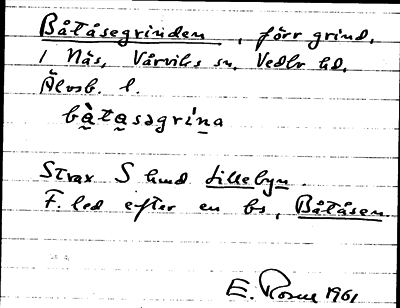 Båtåsegrinden, förr grind,
i Näs, Vårviks sn, Vedbo hd,
Älvsb. l.
bàtasəgrína
Strax S hmd Lillebyn.
F. led efter en bs, Båtåsen.
E. Rosell 1961